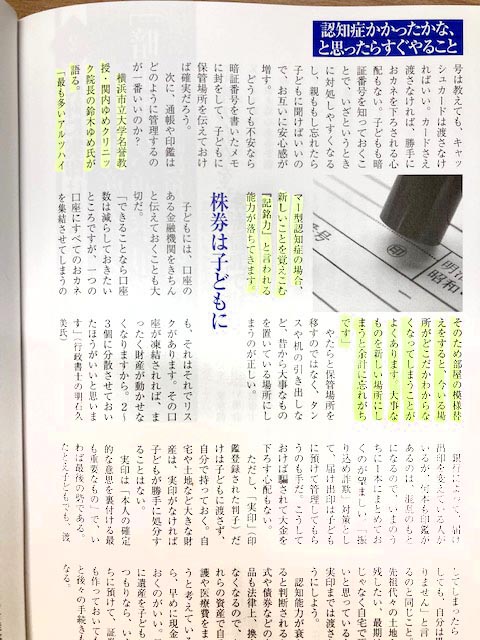 認知症かかったかな、
と思ったらすぐやること
号は教えても、キャッ
シュカードは渡さなけ
ればいい。カードさえ
渡さなければ、勝手に
おカネを下ろされる心
配もない。子どもも暗
証番号を知っておくこ
とで、いざというとき
に対処しやすくなる
し、親ももし忘れたら
子どもに聞けばいいの
で、お互いに安心感が
増す。
どうしても不安なら
暗証番号を書いたメモ
に封をして、子どもに
保管場所を伝えておけ
ば確実だろう。
次に、通帳や印鑑は
どのように管理するの
が一番いいのか？
横浜市立大学名誉教
授・関内ゆめクリニッ
ク院長の鈴木ゆめ氏が
語る。
「最も多いアルツハイ
マー型認知症の場合、
新しいことを覚えこむ
『記銘力』と言われる
能力が落ちてきます。
そのため部屋の模様替
えをすると、今いる場
所がどこだかわからな
くなってしまうことが
よくあります。大事な
ものを新しい場所にし
まうと余計に忘れがち
です」
やたらと保管場所を
移すのではなく、タン
スや机の引き出しな
ど、昔から大事なもの
を置いている場所にし
まうのが正しい。
株券は子どもに
子どもには、口座の
ある金融機関をきちん
と伝えておくことも大
切だ。
「できることなら口座
数は減らしておきたい
ところですが、一つの
口座にすべてのおカネ
を集結させてしまうの
も、それはそれでリス
クがあります。その口
座が凍結されれば、ま
ったく財産が動かせな
くなりますから。２～
３個に分散させておい
たほうがいいと思いま
す」（行政書士の明石久
美氏）
銀行によって、届け
出印を変えている人が
いるが、何本も印鑑が
あるのは、混乱のもと
になるので、いまのう
ちに１本にまとめてお
くのが望ましい。「振
り込め詐欺」対策とし
て、届け出印は子ども
に預けて管理してもら
うのも手だ。こうして
おけば騙されて大金を
下ろす心配もない。
ただし、「実印（印
鑑登録された判子）だ
けは子どもに渡さず、
自分で持っておく。自
宅や土地など大きな財
産は、実印がなければ
子どもが勝手に処分す
ることはない。
実印は「本人の確定
的な意思を裏付ける最
も重要なもの」で、い
わば最後の砦である。
たとえ子どもでも、渡